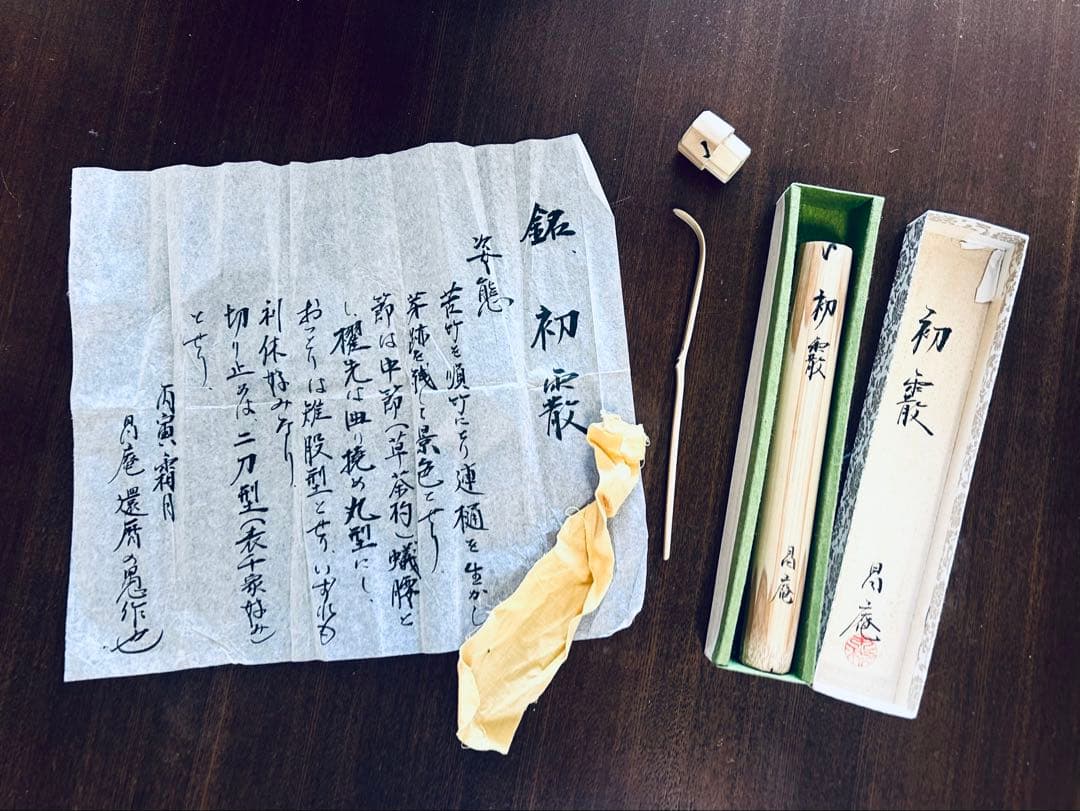 銘、初霰
姿態
苦竹を順竹にとり連樋を生かし
芽跡を残して景色とせり
節は中節(草茶杓)蟻腰と
し、櫂先は曲り撓め丸型にし、
おっとりは雉股型とせり、いずれも
利休好みなり
切り止めは、二刀型(表千家好み)
とせり、
丙寅霜月
昌庵 還暦の愚作也
初霰
昌庵
初霰
昌庵